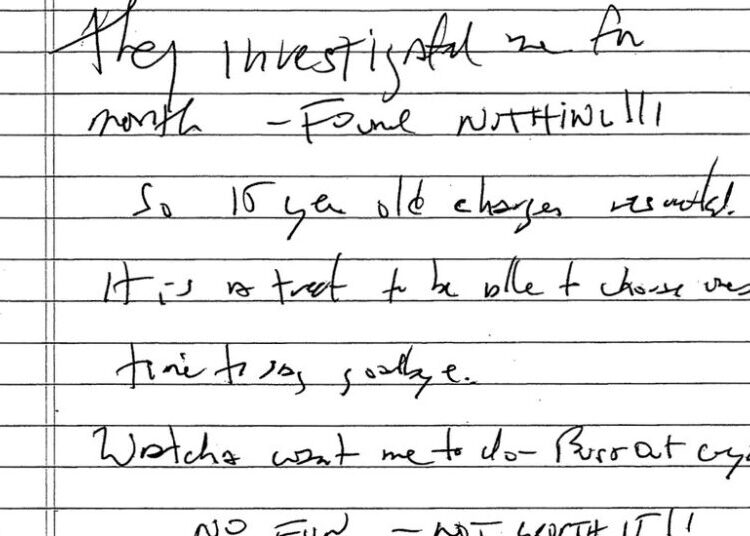 They investigated me for
month - Found NOTHING!!!
So 15 year old charges resulted.
It is a treat to be able to choose ones
time to say goodbye.
Watcha want me to do - Burst out cryi
NO FUN - NOT WORTH IT!!